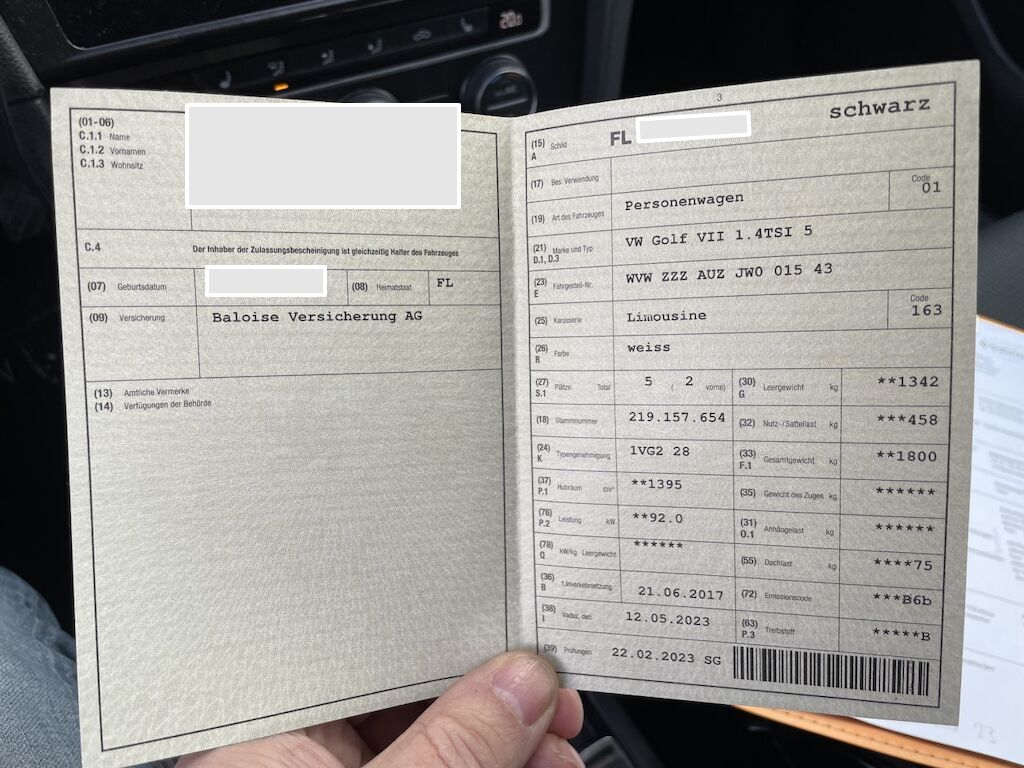 20.0
(01-06)
C.1.1 Name
C.1.2 Vornamen
C.1.3 Wohnsitz
C.4 Der Inhaber der Zulassungsbescheinigung ist gleichzeitig Halter des Fahrzeuges
(07) Geburtsdatum (08) Heimatstaat FL
(09) Versicherung Baloise Versicherung AG
(13) Amtliche Vermerke
(14) Verfügungen der Behörde
3
(15) A Schild FL schwarz
(17) Bes. Verwendung
(19) Art des Fahrzeuges Personenwagen Code 01
(21) D.1, D.3 Marke und Typ VW Golf VII 1.4TSI 5
(23) E Fahrgestell-Nr. WVW ZZZ AUZ JW0 015 43
(25) Karosserie Limousine Code 163
(26) R Farbe weiss
(27) S.1 Plätze: Total 5 ( 2 vorne) (30) G Leergewicht kg **1342
(18) Stammnummer 219.157.654 (32) Nutz-/Sattellast kg ***458
(24) K Typengenehmigung 1VG2 28 (33) F.1 Gesamtgewicht kg **1800
(37) P.1 Hubraum cm³ **1395 (35) Gewicht des Zuges kg ******
(76) P.2 Leistung kW **92.0 (31) O.1 Anhängelast kg ******
(78) Q kW/kg Leergewicht ****** (55) Dachlast kg ****75
(36) B 1.Inverkehrsetzung 21.06.2017 (72) Emissionscode ***B6b
(38) I Vaduz, den 12.05.2023 (63) P.3 Treibstoff *****B
(39) Prüfungen 22.02.2023 SG
23